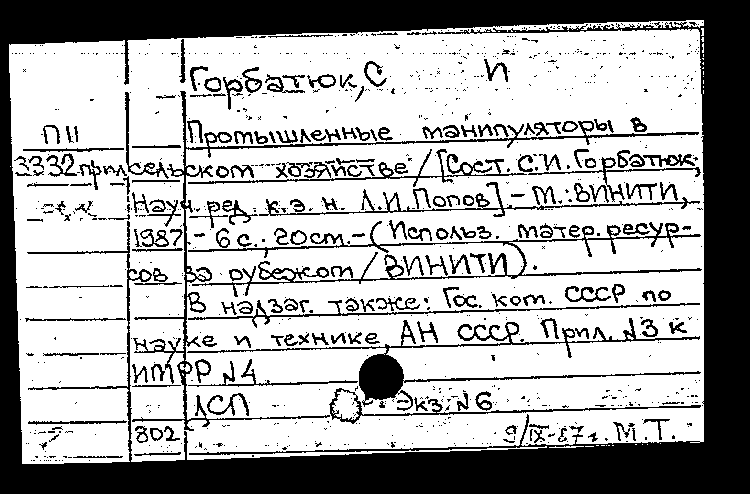 Горбатюк, С. И
П II Промышленные манипуляторы в
3332 прил сельском хозяйстве / [Сост. С.И. Горбатюк;
Науч. ред. к.э.н. Л.И. Попов]. - М.: ВИНИТИ,
1987. - 6 с.; 20 см. - (Использ. матер. ресур-
сов за рубежом / ВИНИТИ).
В надзаг. также: Гос. ком. СССР по
науке и технике, АН СССР. Прил. N3 к
ИМРР N4.
ДСП Экз. N6
802 9/IX-87 г. М.Т.